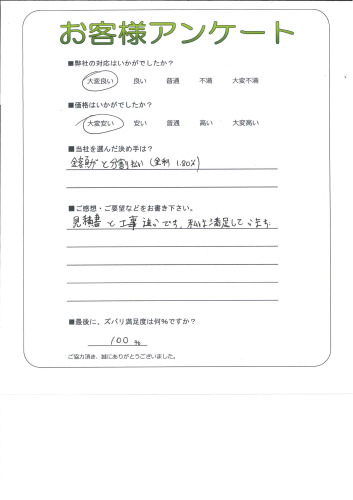 お客様アンケート
■弊社の対応はいかがでしたか？
大変良い 良い 普通 不満 大変不満
■価格はいかがでしたか？
大変安い 安い 普通 高い 大変高い
■当社を選んだ決め手は？
金額が と分割払い (金利 1.80%)
■ご感想・ご要望などをお書き下さい。
見積書と工事 です、私は満足しています
■最後に、ズバリ満足度は何％ですか？
100 %
ご協力頂き、誠にありがとうございました。